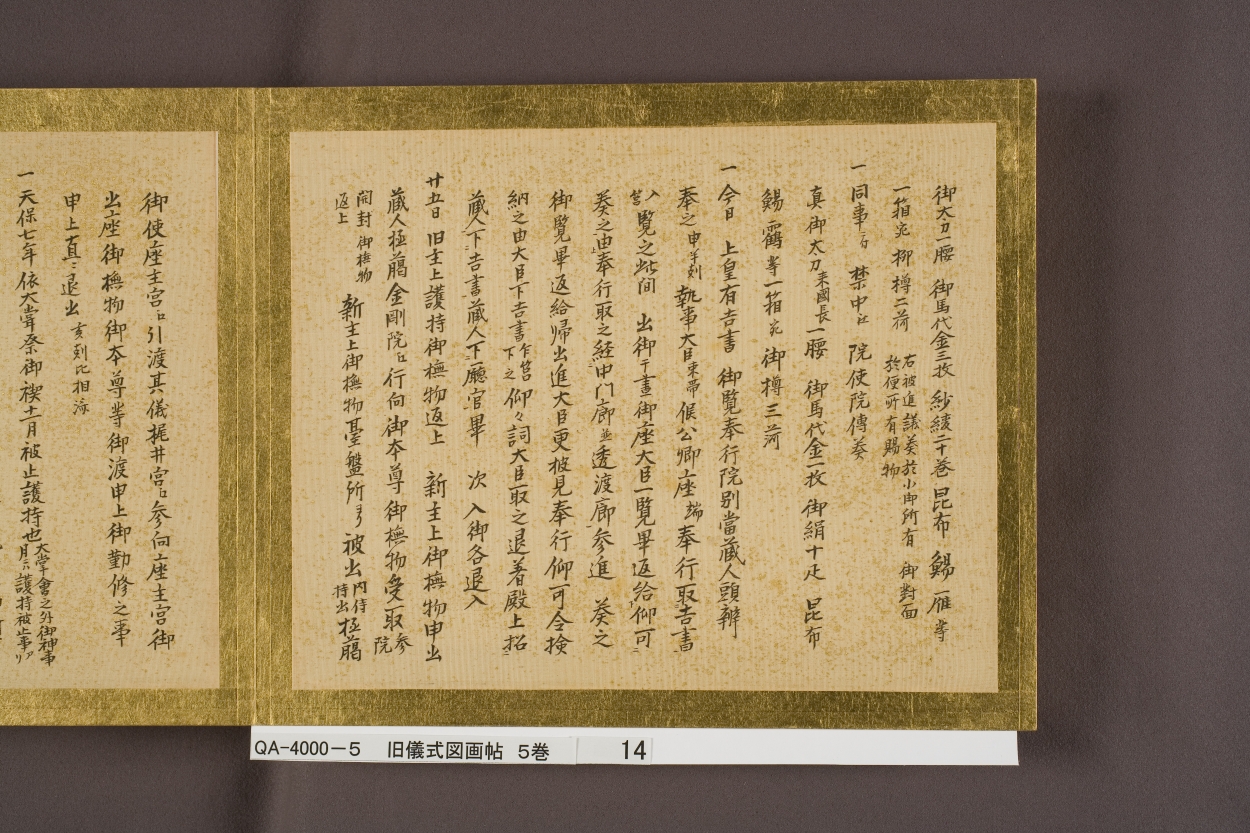 御太刀一腰 御馬代金三枚 紗綾二十巻 昆布 鯣 一雁等
一箱宛 柳樽二荷 右被進 議奏於小御所有 御対面 於便所有賜物
一同事ニ而 禁中江 院使院傳奏
真御太刀来國長一腰 御馬代金一枚 御絹十疋 昆布
鯣 鶴等一箱宛 御樽三荷
一今日 上皇有吉書 御覧奉行院別當蔵人頭辨
奉之申半刻 執事大臣束帯候公卿座端奉行取吉書
入筥覧之此間 出御于晝御座大臣一覧畢返給仰可
奏之由奉行取之経中門廊並透渡廊参進 奏之
御覧畢返給帰出進大臣更披見奉行仰可令検
納之由大臣下吉書乍筥下之仰々詞大臣取之退着殿上招
蔵人下吉書蔵人下廳官畢 次 入御各退入
廿五日 旧主上護持御撫物返上 新主上御撫物申出
蔵人極﨟金剛院江行向御本尊御撫物受取参院
開封御撫物返上 新主上御撫物臺盤所ヨリ被出内侍持出極﨟
御使座主宮江引渡其儀梶井宮江参向座主宮御
出座御撫物御本尊等御渡申上御勤修之事
申上直ニ退出亥刻比相済
一天保七年依大嘗祭御禊十一月被止護持也大嘗會之外御神事月ニハ護持被止事アリ
QA-4000-5 旧儀式図画帖 5巻 14